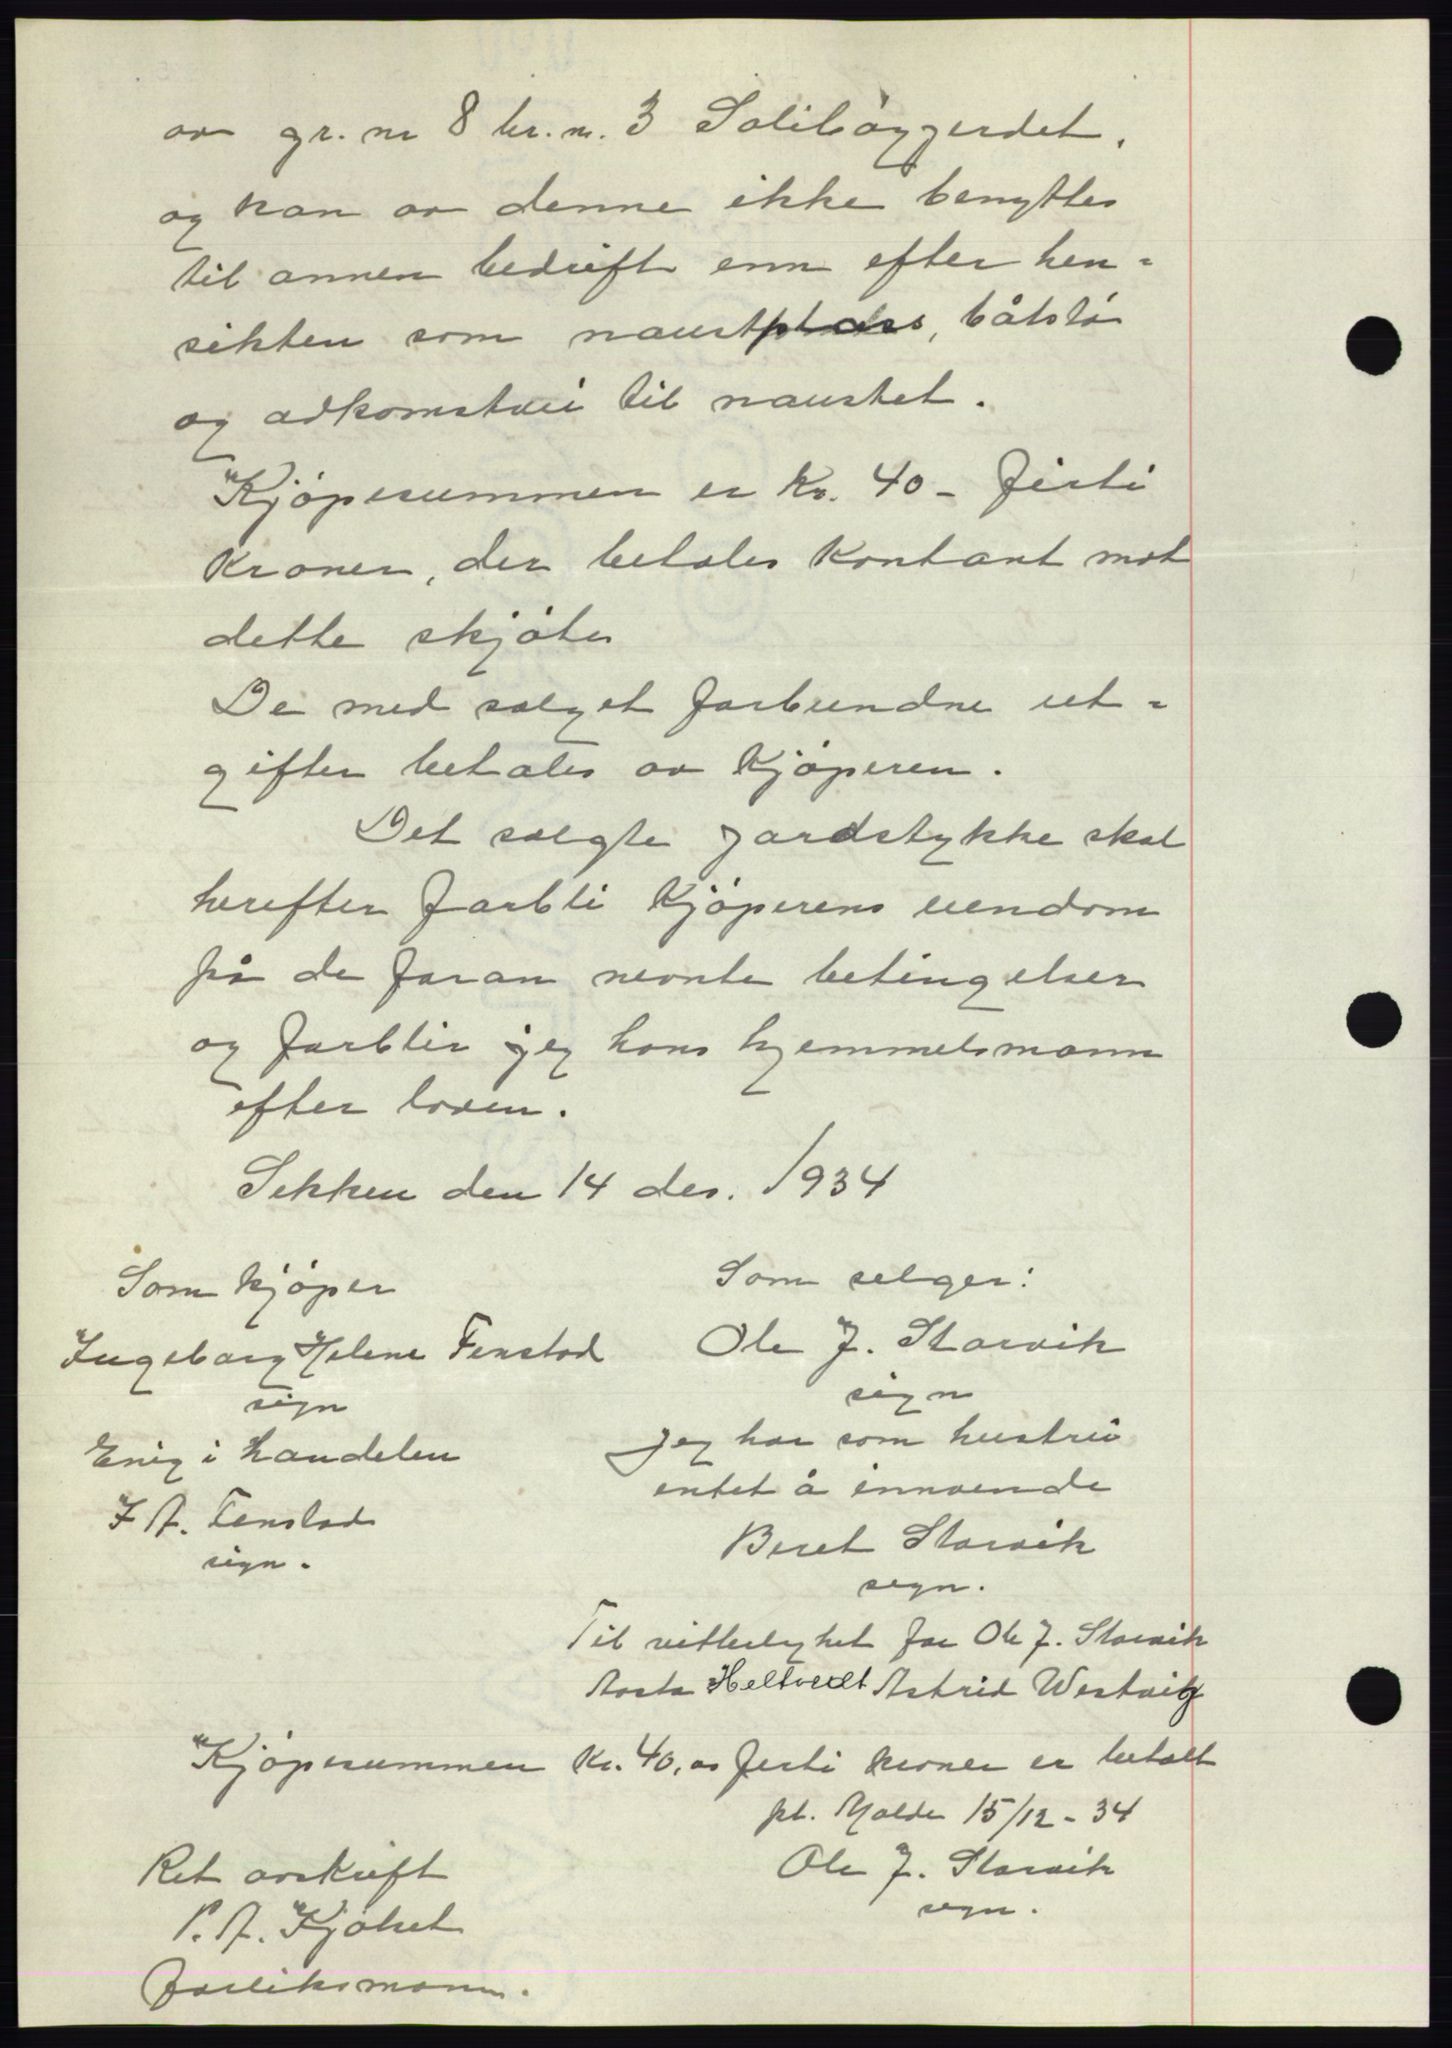 av gr. nr 8 br. n. 3 Solibøygerdet,
og kan av denne ikke benyttes
til annen bedrift enn efter hen-
sikten som naustplass, båtstø
og adkomstvei til naustet.
Kjøpesummen er kr. 40 - firti
kroner, der betales kontant mot
dette skjøte
De med salget forbundne ut-
gifter betales av kjøperen.
Det solgte jordstykke skal
herefter forbli kjøperens eiendom
på de foran nevnte betingelser
og forblir jeg hans hjemmelsmann
efter loven.
Sekken den 14 des. 1934
Som kjøper
Ingeborg Helene Fenstad
sign
Enig i handelen
I A. Fenstad
sign.
Som selger:
Ole J. Storvik
sign
Jeg har som hustru
intet å innvende
Beret Storvik
sign.
Til vitterlighet for Ole J. Storvik
Aasta Heltvedt Astrid Westvig
Kjøpesummen kr. 40,00 firti kroner er betalt
pt. Molde 15/12-34
Ole J. Storvik
sign.
Ret avskrift
P. A. Kjølset
forliksmann.